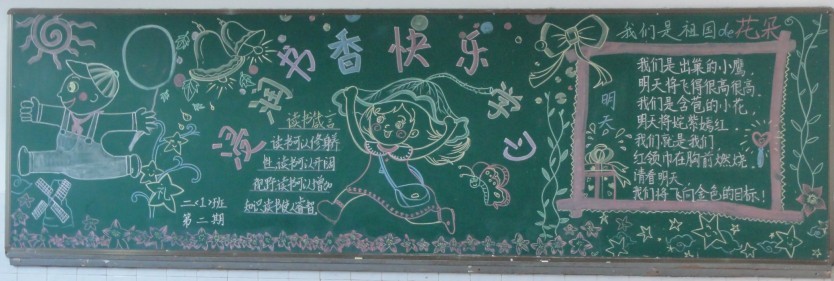 浸润书香快乐学心
读书箴言
读书可以修养
性读书可以开阔
视野读书可以增加
知识读书使人睿智
二〈1〉班
第二期
我们是祖国de花朵
明天
我们是出巢的小鹰，
明天将飞得很高很高
我们是含苞的小花，
明天将姹紫嫣红
我们就是我们
红领巾在胸前燃烧
请看明天
我们将飞向金色的目标！